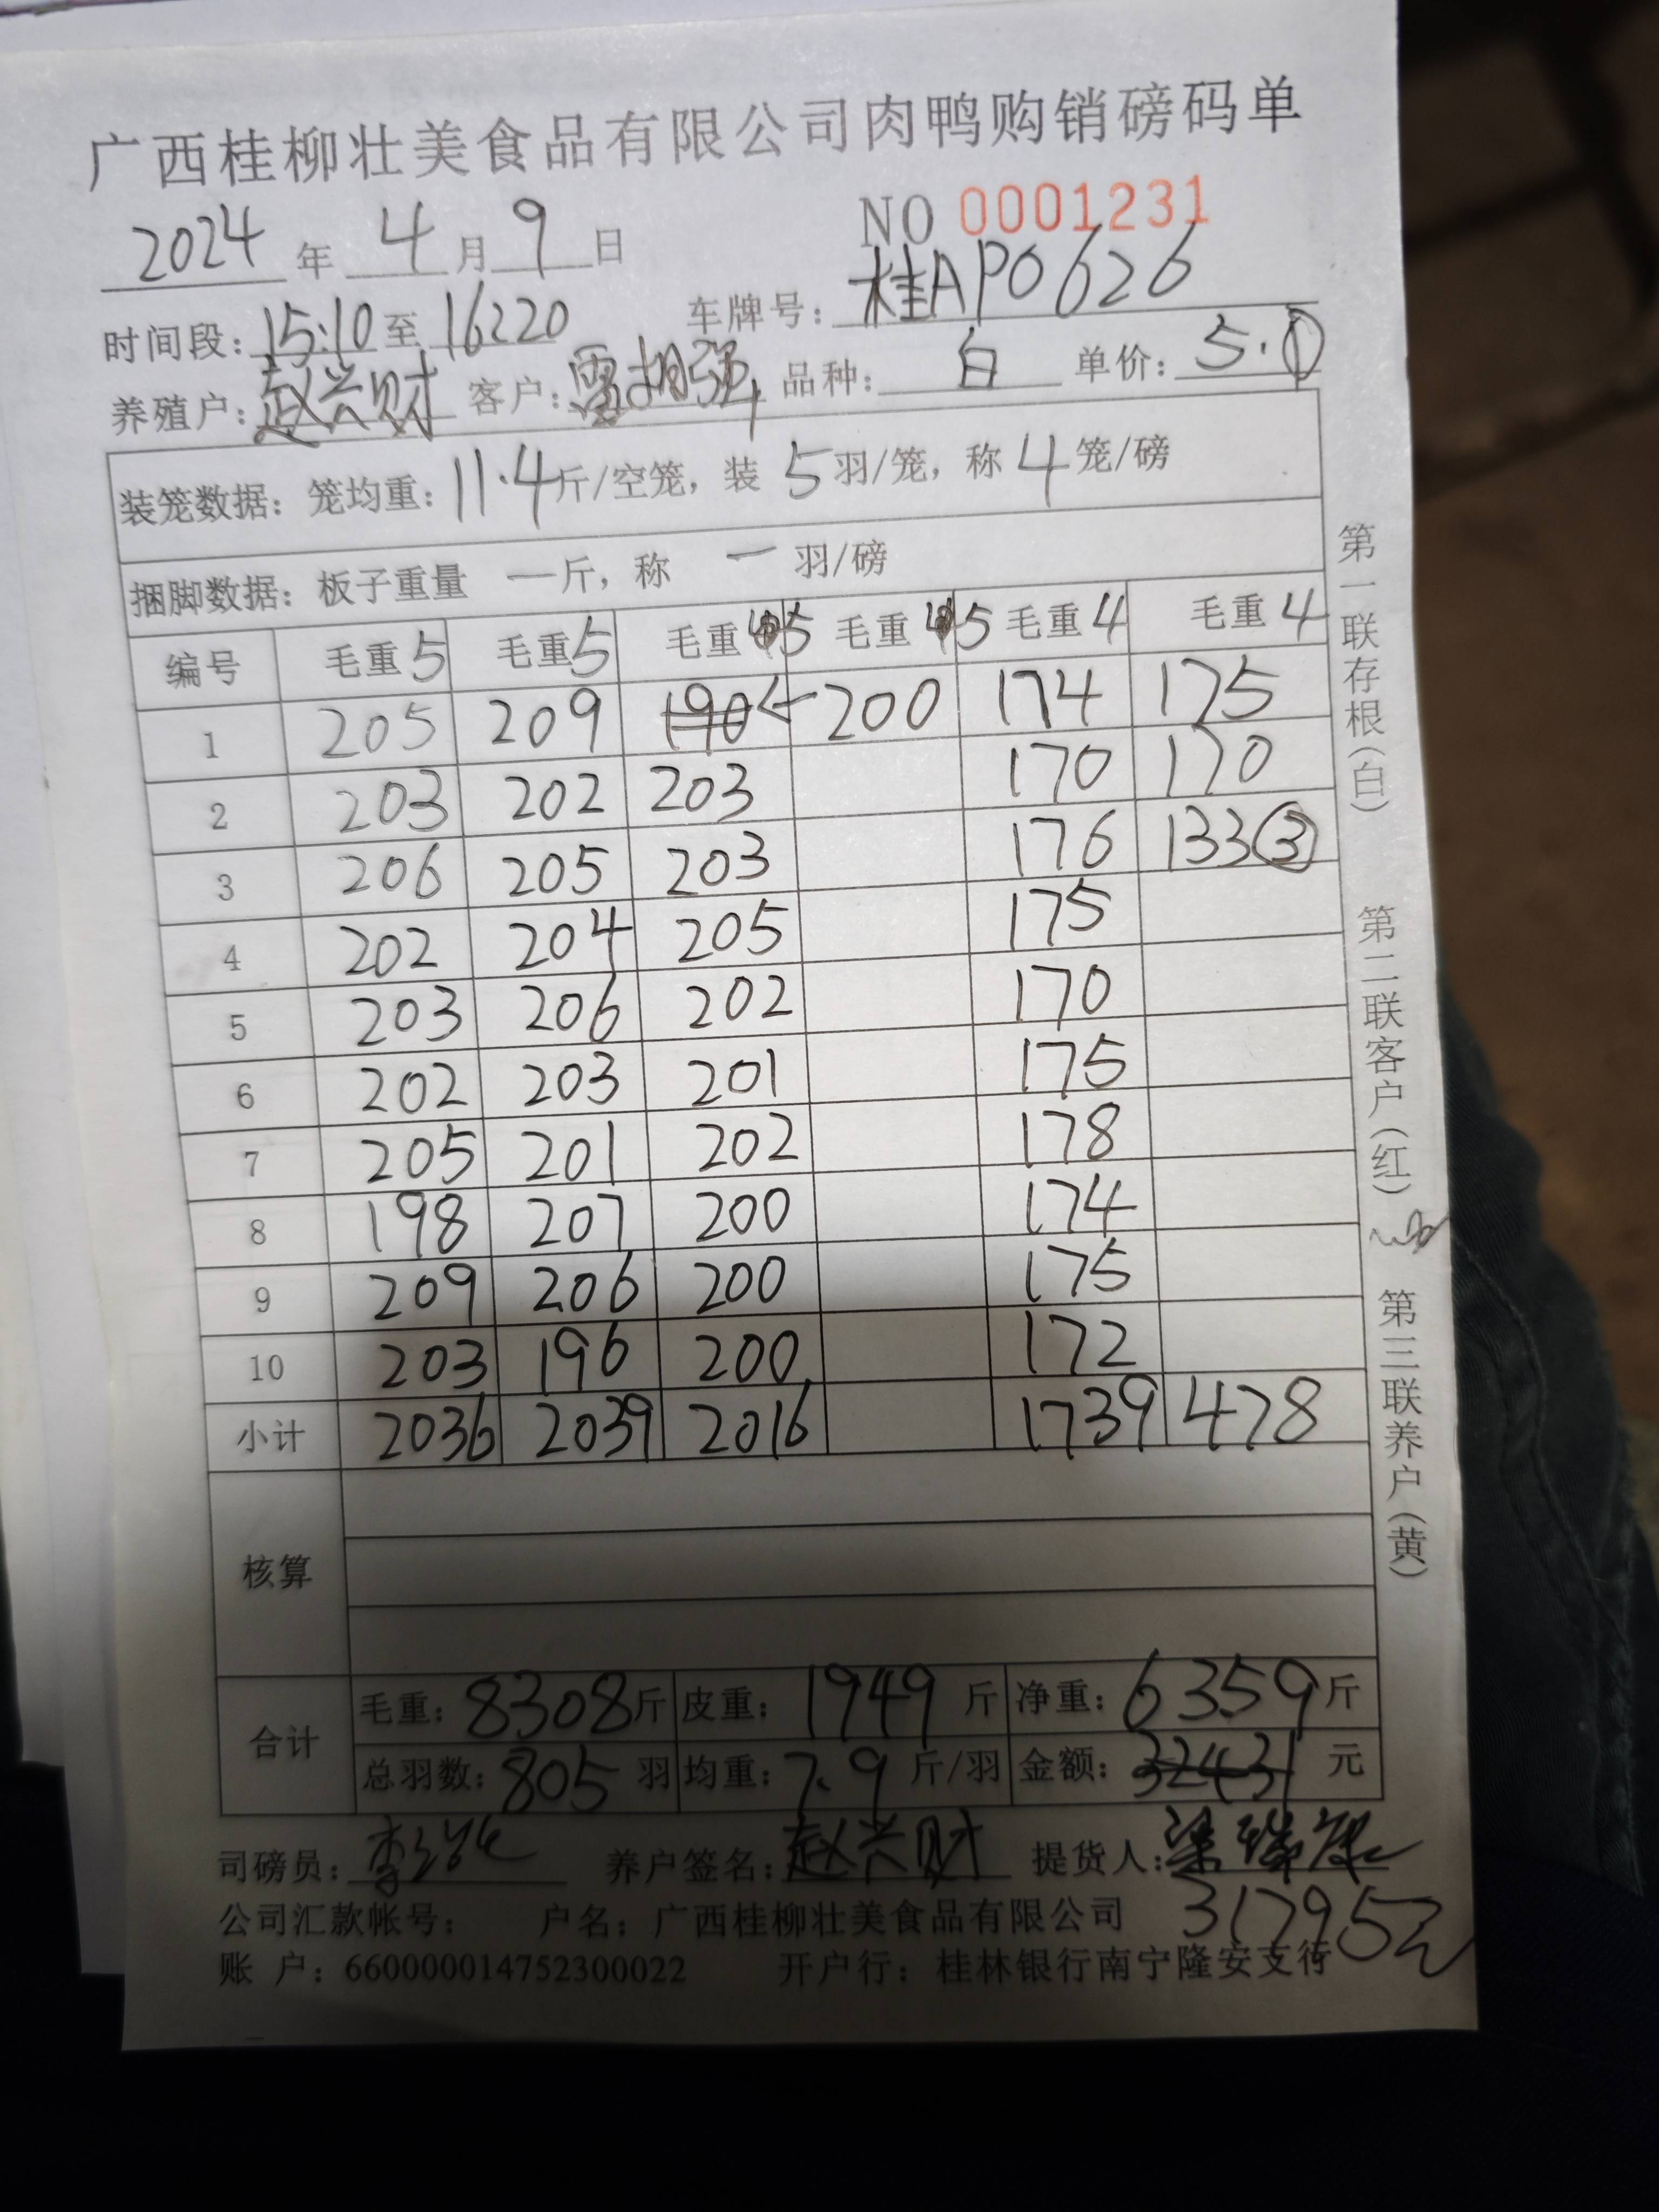 广西桂柳壮美食品有限公司肉鸭购销磅码单
2024年4月9日 NO 0001231
时间段：15:10至16:20 车牌号：桂AP0626
养殖户：赵兴财 客户：雷 强 品种：白 单价：5.①
装笼数据：笼均重：11.4斤/空笼，装5羽/笼，称4笼/磅
捆脚数据：板子重量 一斤，称 一 羽/磅
编号 毛重5 毛重5 毛重5 毛重5 毛重4 毛重4
1 205 209 190 ← 200 174 175
2 203 202 203 170 170
3 206 205 203 176 133③
4 202 204 205 175
5 203 206 202 170
6 202 203 201 175
7 205 201 202 178
8 198 207 200 174
9 209 206 200 175
10 203 196 200 172
小计 2036 2039 2016 1739 478
核算
合计 毛重：8308斤 皮重：1949斤 净重：6359斤
总羽数：805羽 均重：7.9斤/羽 金额：32431元
司磅员： 养户签名：赵兴财 提货人：梁
31795元
公司汇款帐号： 户名：广西桂柳壮美食品有限公司
账 户：660000014752300022 开户行：桂林银行南宁隆安支行
第一联存根（白） 第二联客户（红） 第三联养户（黄）